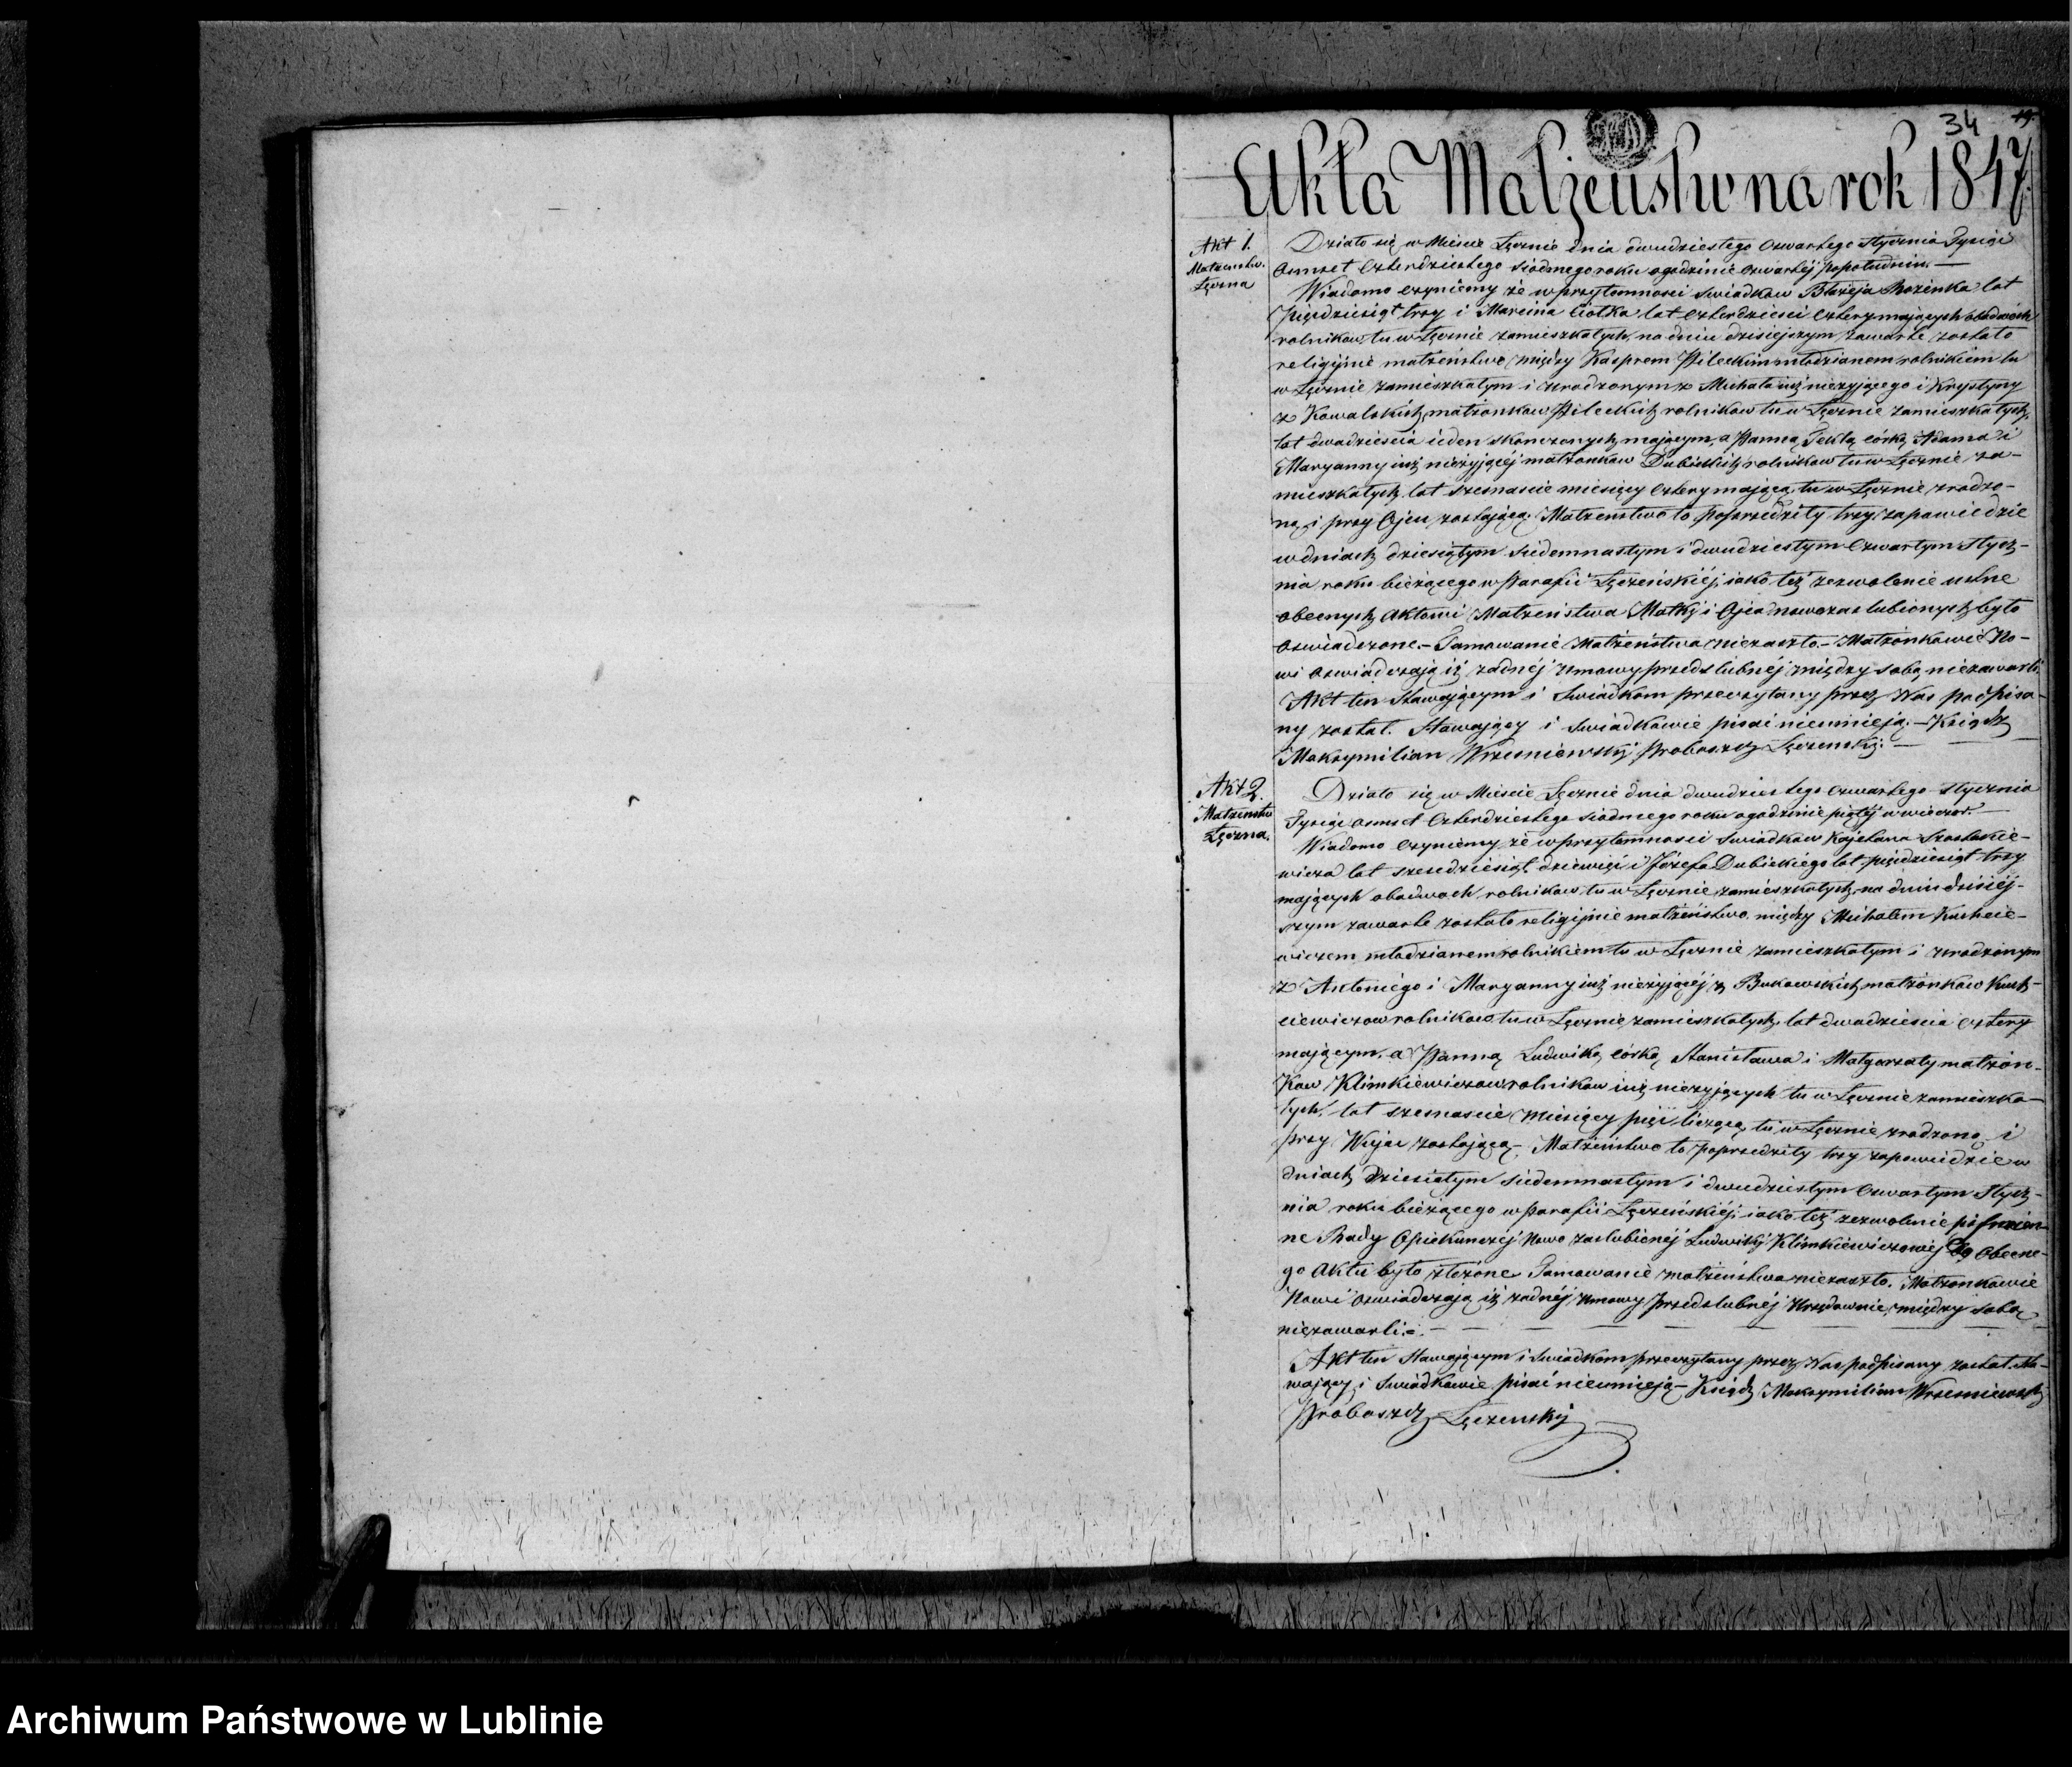 34
Akta Małżeństw na rok 1847.
Akt 1.
Małżeństw.
Łęczna
Działo się w Mieście Łęcznie dnia dwudziestego czwartego Stycznia Tysiąc
osmset czterdziestego siodmego roku o godzinie czwartéj popołudniu. —
Wiadomo czyniemy że w przytomnosci swiadkow Błażeja lat
pięcdziesiąt trzy i Marcina Ciołka lat czterdziesci cztery maiących obadwóch
rolnikow tu w Łęcznie zamieszkałych, na dniu dzisiejszym zawarte zostało
religijnie małżeństwo między Kasprem Pileckim młodzianem rolnikiem tu
w Łęcznie zamieszkałym i urodzonym z Michała iuż nieżyjącego i Krystyny
z Kowalskich małżonkow Pileckich rolnikow tu w Łęcznie zamieszkałych,
lat dwadziescia ieden skonczonych mającym, a Panną Teklą córką Adama i
Maryanny iuż nieżyjącéj małżonkow Dubickich rolnikow tu w Łęcznie za-
mieszkałych lat szesnascie miesięcy cztery mającą, tu w Łęcznie zrodzo-
ną i przy Ojcu zostającą. Małżenstwo to poprzedziły trzy zapowiedzie
w dniach dziesiątym siedemnastym i dwudziestym czwartym Stycz-
nia roku bieżącego w Parafii Łęczeńskiéj, iako też zezwolenie ustne
obecnych Aktowi Małżeństwa Matki i Ojca nowozaslubionych było
oswiadczone. – Tamowanie Małżeństwa niezaszło. – Małżonkowie No-
wi oswiadczają iż żadnéj umowy przedslubnéj między sobą niezawarli
Akt ten Stawającym i Swiadkom przeczytany przez Nas podpisa-
ny został. Stawający i Swiadkowie pisać nieumieją. – Ksiądz
Maksymilian Wrzesniewski Proboszcz Łęczenski. —
Akt 2.
Małżenstw
Łęczna.
Działo się w Mieście Łęcznie dnia dwudziestego czwartego Stycznia
Tysiąc osmset czterdziestego siodmego roku o godzinie piątéj w wieczor. —
Wiadomo czyniemy że w przytomnosci Swiadkow Kajetana Szostakie-
wicza lat szescdziesiąt dziewięć i Józefa Dubickiego lat pięcdziesiąt trzy
mających obadwóch rolnikow tu w Łęcznie zamieszkałych, na dniu dzisiéj-
szym zawarte zostało religijnie małżeństwo między Michałem Kuchcie-
wiczem młodzianem rolnikiem tu w Łęcznie zamieszkałym i urodzonym
z Antoniego i Maryanny iuż nieżyjącéj z Bukowskich małżonkow Kuch-
ciewiczow rolnikow tu w Łęcznie zamieszkałych, lat dwadziescia cztery
mającym, a Panną Ludwiką córką Stanisława i Małgorzaty małżon-
kow Klimkiewiczow rolnikow iuż nieżyjących tu w Łęcznie zamieszka-
łych, lat szesnascie miesięcy pięć liczącą, tu w Łęcznie zrodzoną i
przy Wuju zostającą. Małżeństwo to poprzedziły trzy zapowiedzie w
dniach dziesiątym siedemnastym i dwudziestym czwartym Stycz-
nia roku bieżącego w Parafii Łęczeńskiéj, iako też zezwolenie pismien-
ne Rady Opiekunczéj Nowo zaslubionéj Ludwiki Klimkiewiczownéj do obecne-
go Aktu było złożone. Tamowanie małżeństwa niezaszło. Małżonkowie
Nowi oswiadczają iż żadnéj Umowy Przedslubnéj Urzędownie między sobą
niezawarli. —
Akt ten Stawającym i Swiadkom przeczytany przez Nas podpisany został. Sta-
wający i Swiadkowie pisać nieumieją – Ksiądz Maksymilian Wrzesniewski
Proboszcz Łęczenski
Archiwum Państwowe w Lublinie